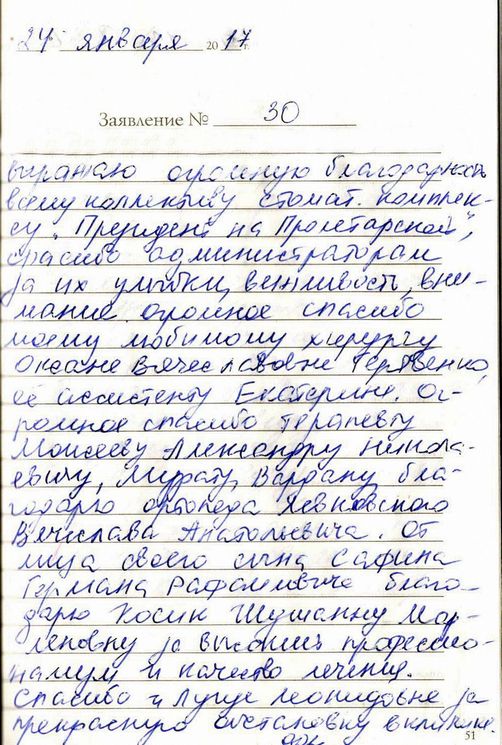 24 января 2017 г.
Заявление № 30
выражаю огромную благодарность
всему коллективу стомат. комплек-
су "Президент на Пролетарской",
спасибо администраторам
за их улыбки, вежливость, вни-
мание. огромное спасибо
моему любимому хирургу
Оксане Вячеславовне
её ассистенту Екатерине. Ог-
ромное спасибо терапевту
Моисееву Александру Никола-
евичу, Мурату, Вардану, бла-
годарю ортопеда
Вячеслава Анатольевича. От
лица своего сына Сафина
Германа Рафаиловича благо-
дарю Косян Шушанну Мар-
леновну за высокий професси-
нализм и качество лечения.
Спасибо и Луизе Леонидовне за
прекрасную обстановку в клинике
51